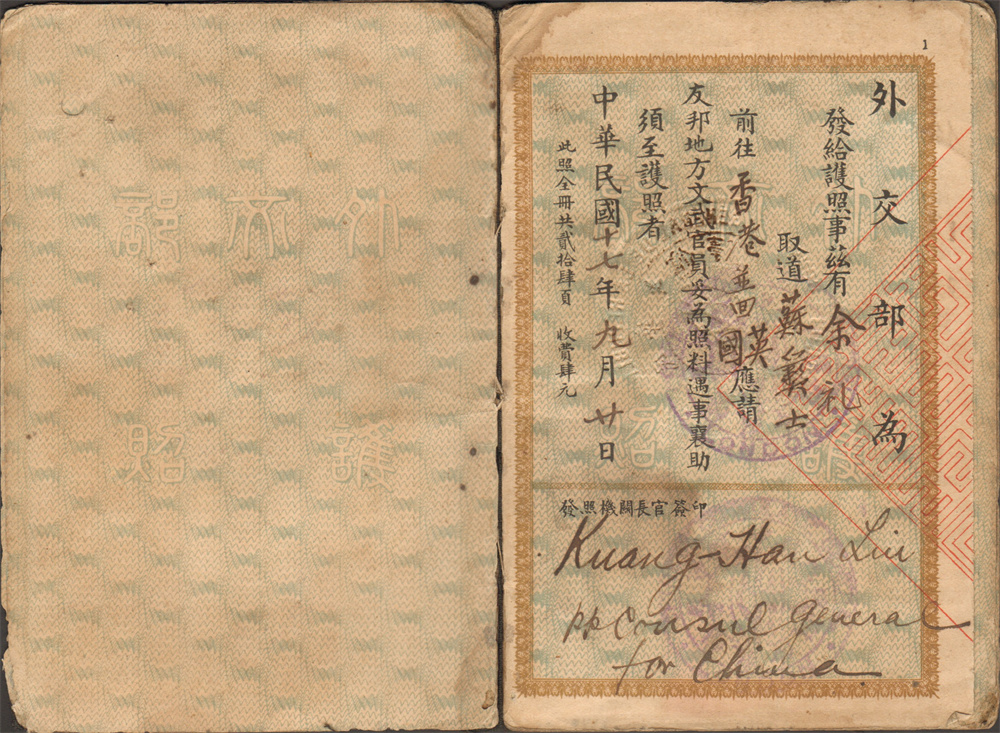 1
外交部為
發給護照事茲有余礼
取道蘇彝士
前往香巷並回英國應請
友邦地方文武官員妥為照料遇事襄助
須至護照者
中華民國十七年九月廿日
此照全冊共貳拾肆頁 收費肆元
發照機關長官簽印
Kuang-Han Liu
pp Consul General
for China